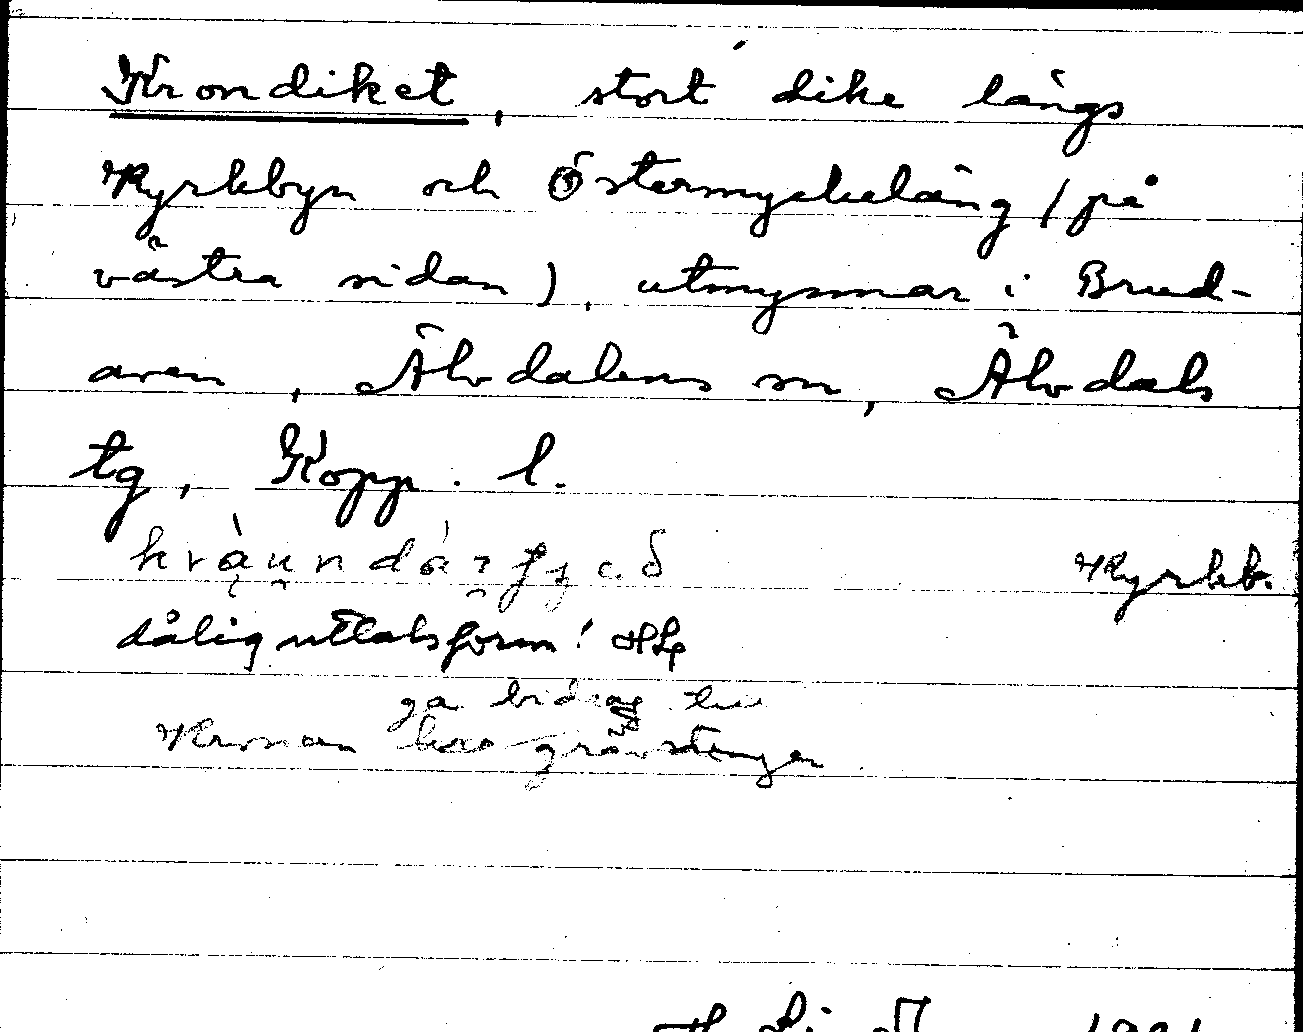 Krondiket, stort dike längs
Kyrkbyn och Östermyckeläng (på
västra sidan), utmynnar i Brud-
aren, Älvdalens sn, Älvdals
tg, Kopp. l.
Kyrkb.
dålig uttalsform! HLg
ga bidrag till
Kronan har grävningen